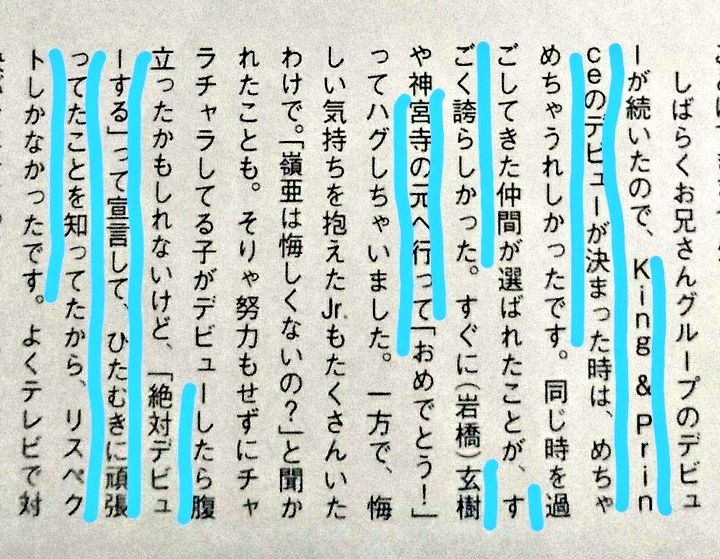 しばらくお兄さんグループのデビュ
ーが続いたので、King & Prin
ceのデビューが決まった時は、めちゃ
めちゃうれしかったです。同じ時を過
ごしてきた仲間が選ばれたことが、す
ごく誇らしかった。すぐに(岩橋)玄樹
や神宮寺の元へ行って「おめでとう!」
ってハグしちゃいました。一方で、悔
しい気持ちを抱えたJr.もたくさんいた
わけで。「嶺亜は悔しくないの?」と聞か
れたことも。そりゃ努力もせずにチャ
ラチャラしてる子がデビューしたら腹
立ったかもしれないけど、「絶対デビュ
ーする」って宣言して、ひたむきに頑張
ってたことを知ってたから、リスペク
トしかなかったです。よくテレビで対